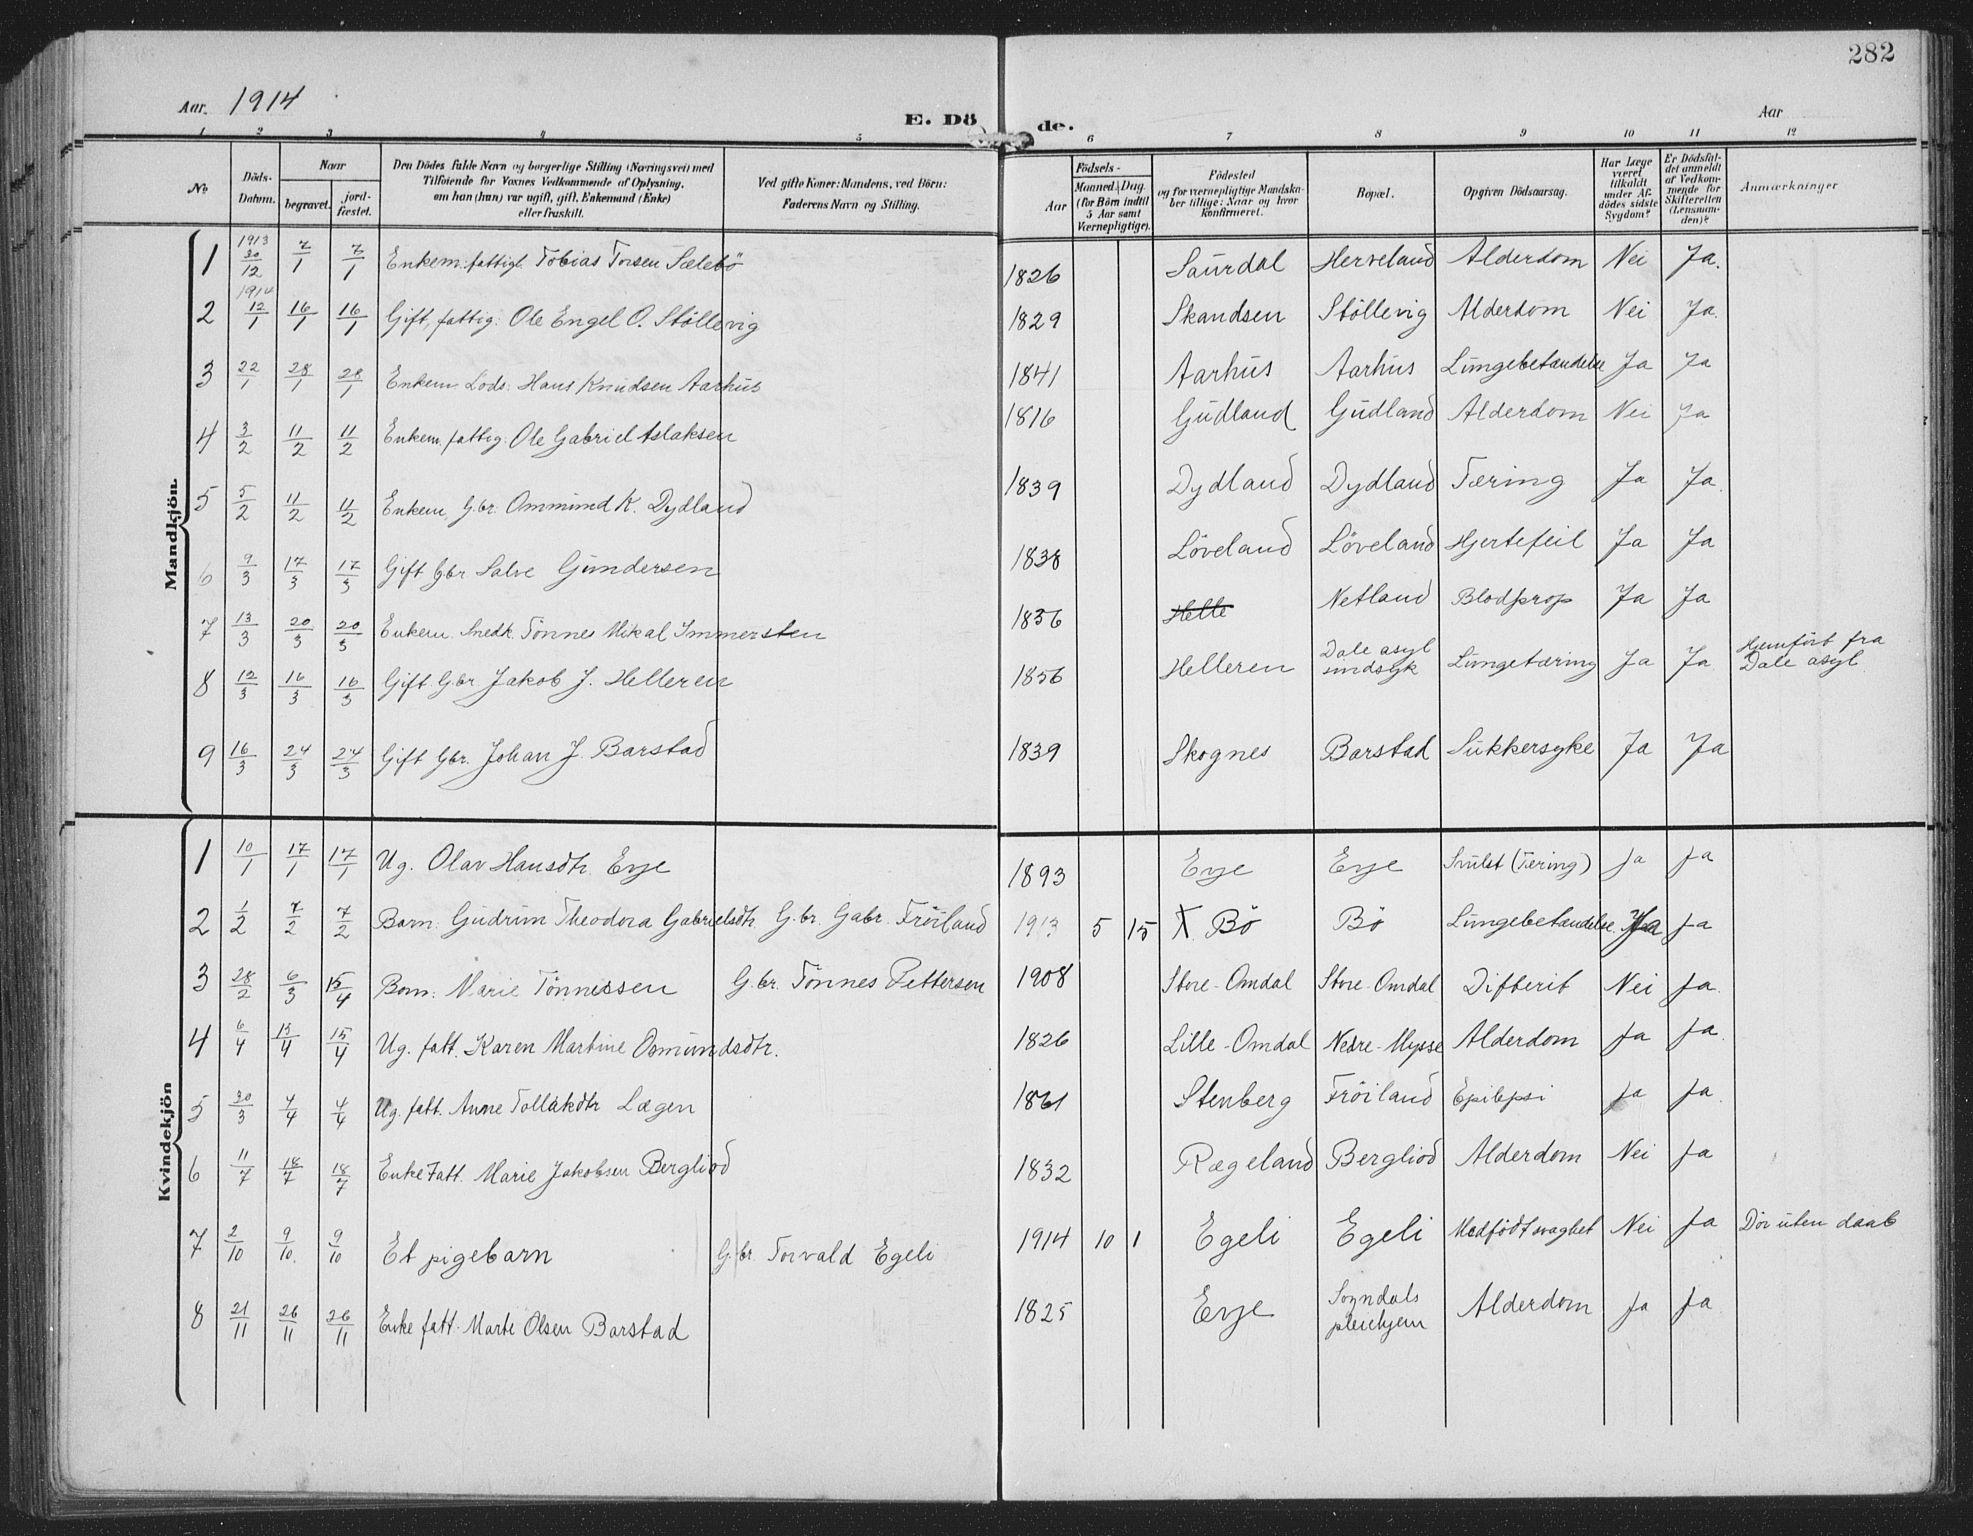 282
Aar. 1914
E. Dö de.
Aar
1 2 3 4 5 6 7 8 9 10 11 12
No
Döds-Datum.
Naar
begravet.
jord-fæstet.
Den Dödes fulde Navn og borgerlige Stilling (Næringsvei) med
Tilföiende for Voxnes Vedkommende af Oplysning,
om han (hun) var ugift, gift, Enkemand (Enke)
eller fraskilt.
Ved gifte Koner: Mandens, ved Börn:
Faderens Navn og Stilling.
Födsels-
Aar
Maaned. Dag.
(for Börn indtil
5 Aar samt
Værnepligtige).
Födested
og for værnepligtige Mandska-
ber tillige: Naar og hvor
konfirmeret.
Bopæl.
Opgiven Dödsaarsag.
Har Læge
været
tilkaldt
under Af-
dödes sidste
Sygdom?
Er Dödsfal-
det anmeldt
af Vedkom-
mende for
Skifteretten
(Lensman-
den)?
Anmærkninger
Mandkjön.
1 1913 30/12 7/1 7/1 Enkem. fattigl. Tobias Torsen Sælebö 1826 Saurdal Herveland Alderdom Nei Ja.
2 1914 12/1 16/1 16/1 Gift, fattig: Ole Engel O. Stöllevig 1829 Skandsen Stöllevig Alderdom Nei Ja.
3 22/1 28/1 28/1 Enkem Lods. Hans Knudsen Aarhus 1841 Aarhus Aarhus Lungebetændelse Ja Ja
4 3/2 11/2 11/2 Enkem. fattig: Ole Gabriel Aslaksen 1816 Gudland Gudland Alderdom Nei Ja
5 5/2 11/2 11/2 Enkem. Gbr. Ommund K. Dydland 1839 Dydland Dydland Tæring Ja Ja.
6 9/3 17/3 17/3 Gift Gbr Salve Gundersen 1838 Löveland Löveland Hjertefeil Ja Ja
7 13/3 20/3 20/3 Enkem. Snedk. Tönnes Mikal Immersten 1836 Helle Netland Blodprop Ja Ja
8 12/3 16/3 16/3 Gift Gbr Jakob J. Helleren 1856 Helleren Dale asyl sindsyk Lungetæring Ja Ja Hjemfört fra Dale asyl
9 16/3 24/3 24/3 Gift Gbr. Johan J. Barstad 1839 Skognes Barstad Sukkersyke Ja Ja
Kvindekjön
1 10/1 17/1 17/1 Ug. Olav Hansdtr. Evje 1893 Evje Evje Svulst (Tæring) Ja Ja
2 1/2 7/2 7/2 Barn. Gudrun Theodora Gabrielsdtr. G.br. Gabr. Fröiland 1913 5 15 Bö Bö Lungebetændelse. Ja Ja
3 28/2 6/3 15/4 Barn: Marie Tönnessen G.br. Tönnes Pettersen 1908 Store-Omdal Store-Omdal Difterit Nei Ja.
4 6/4 15/4 15/4 Ug. fatt. Karen Martine Osmundsdtr. 1826 Lille-Omdal Nedre-Mysse Alderdom Ja Ja.
5 30/3 4/4 4/4 Ug. fatt. Anne Tollakdtr Lægen 1861 Stenberg Fröiland Epilepsi Ja Ja.
6 11/7 18/7 18/7 Enke Fatt. Marie Jakobsen Bergliod 1832 Rægeland Bergliod Alderdom Nei Ja
7 2/10 9/10. 9/10 Et pigebarn G.br. Torvald Egeli 1914 10 1 Egeli Egeli Medfödt svaghet Nei Ja Död uten daab
8 21/11 26/11 26/11 Enke fatt. Marte Olsen Barstad 1825 Evje Sogndals pleiehjem Alderdom Ja Ja